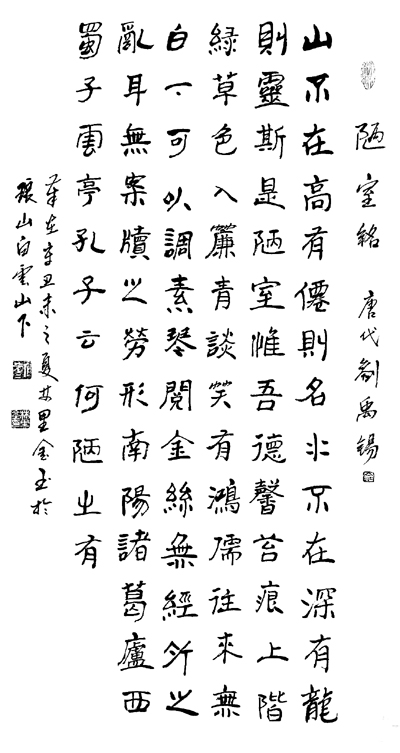 陋室銘 唐代劉禹錫
山不在高有僊則名水不在深有龍
則靈斯是陋室惟吾德馨苔痕上階
綠草色入簾青談笑有鴻儒往來無
白丁可以調素琴閱金絲無經竹之
亂耳無案牘之勞形南陽諸葛廬西
蜀子雲亭孔子云何陋之有
在辛丑未之夏 里金玉於
山白雲山下